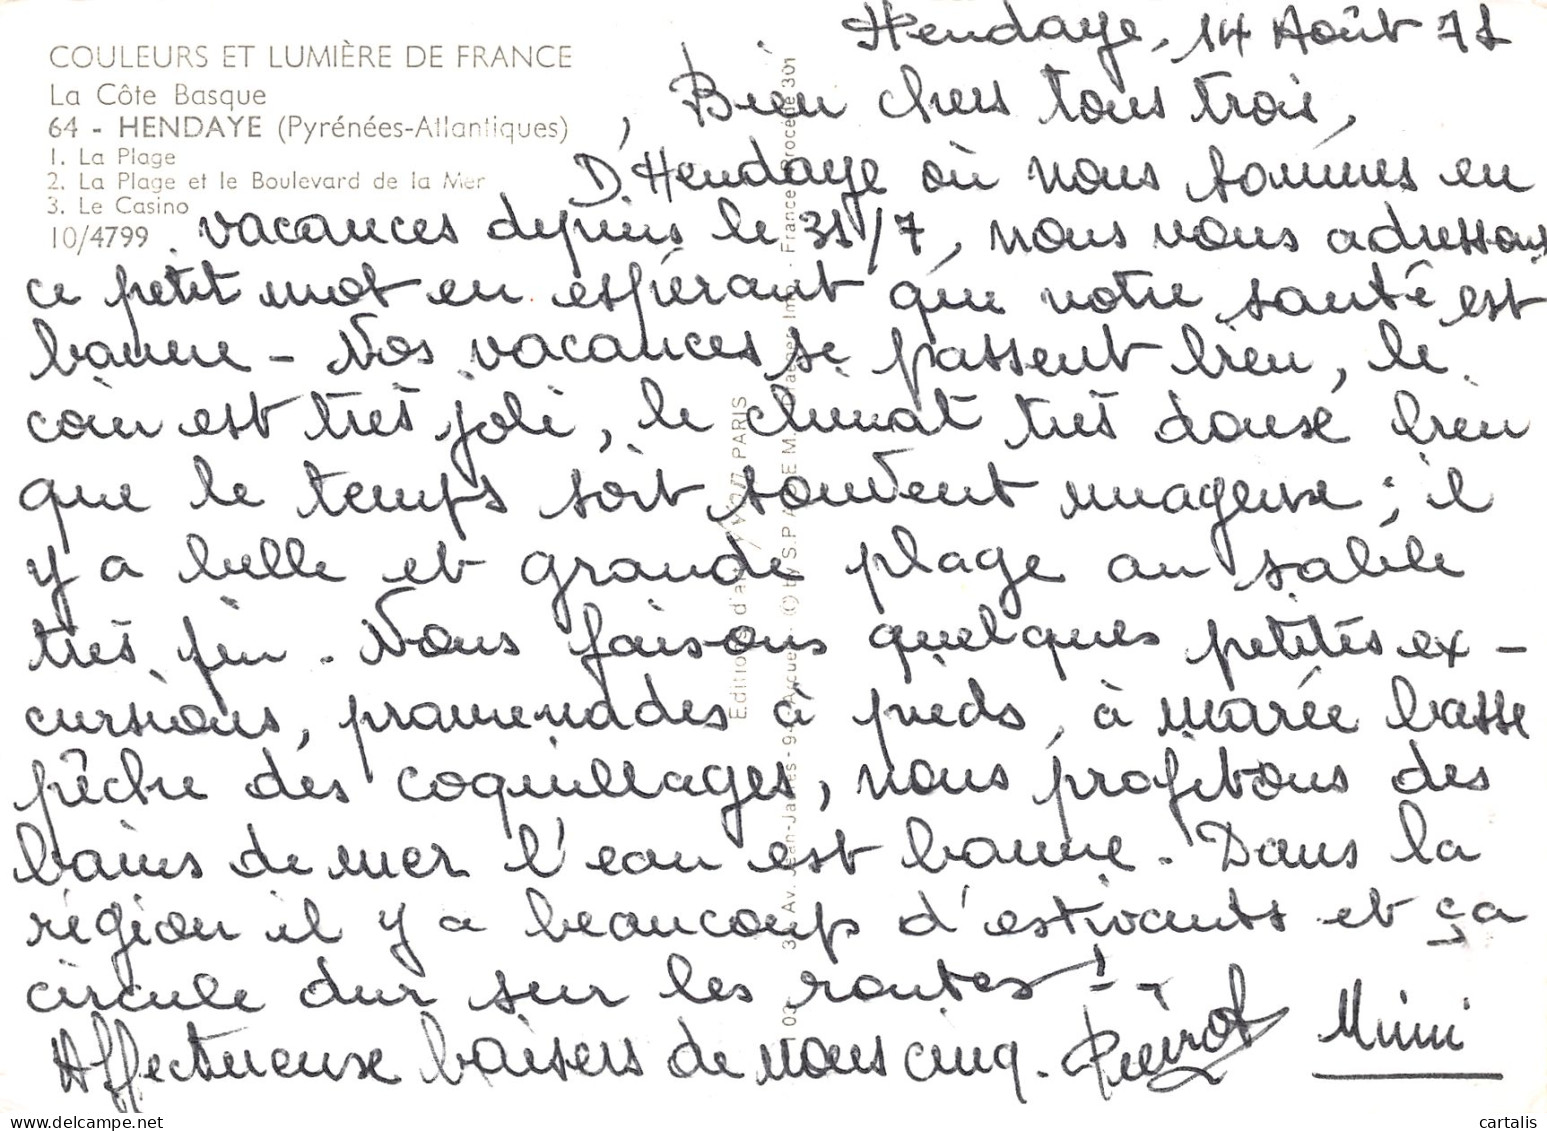 Hendaye, 14 Août 71
COULEURS ET LUMIÈRE DE FRANCE
La Côte Basque
64 - HENDAYE (Pyrénées-Atlantiques)
1. La Plage
2. La Plage et le Boulevard de la Mer
3. Le Casino
10/4799
Bien chers tous trois,
D'Hendaye où nous sommes en
vacances depuis le 31/7, nous vous adressons
ce petit mot en espérant que votre santé est
bonne - Nos vacances se passent bien, le
coin est très joli, le climat très douse bien
que le temps soit souvent nuageuse ; il
y a belle et grande plage au sable
très fin. Nous faisons quelques petites ex-
cursions, promenades à pieds, à marée basse
pêche des coquillages, nous profitons des
bains de mer l'eau est bonne. Dans la
région il y a beaucoup d'estivants et ça
circule dur sur les routes !
Affectueuse baisers de nous cinq. Pierrot Mimi
PARIS
cartalis